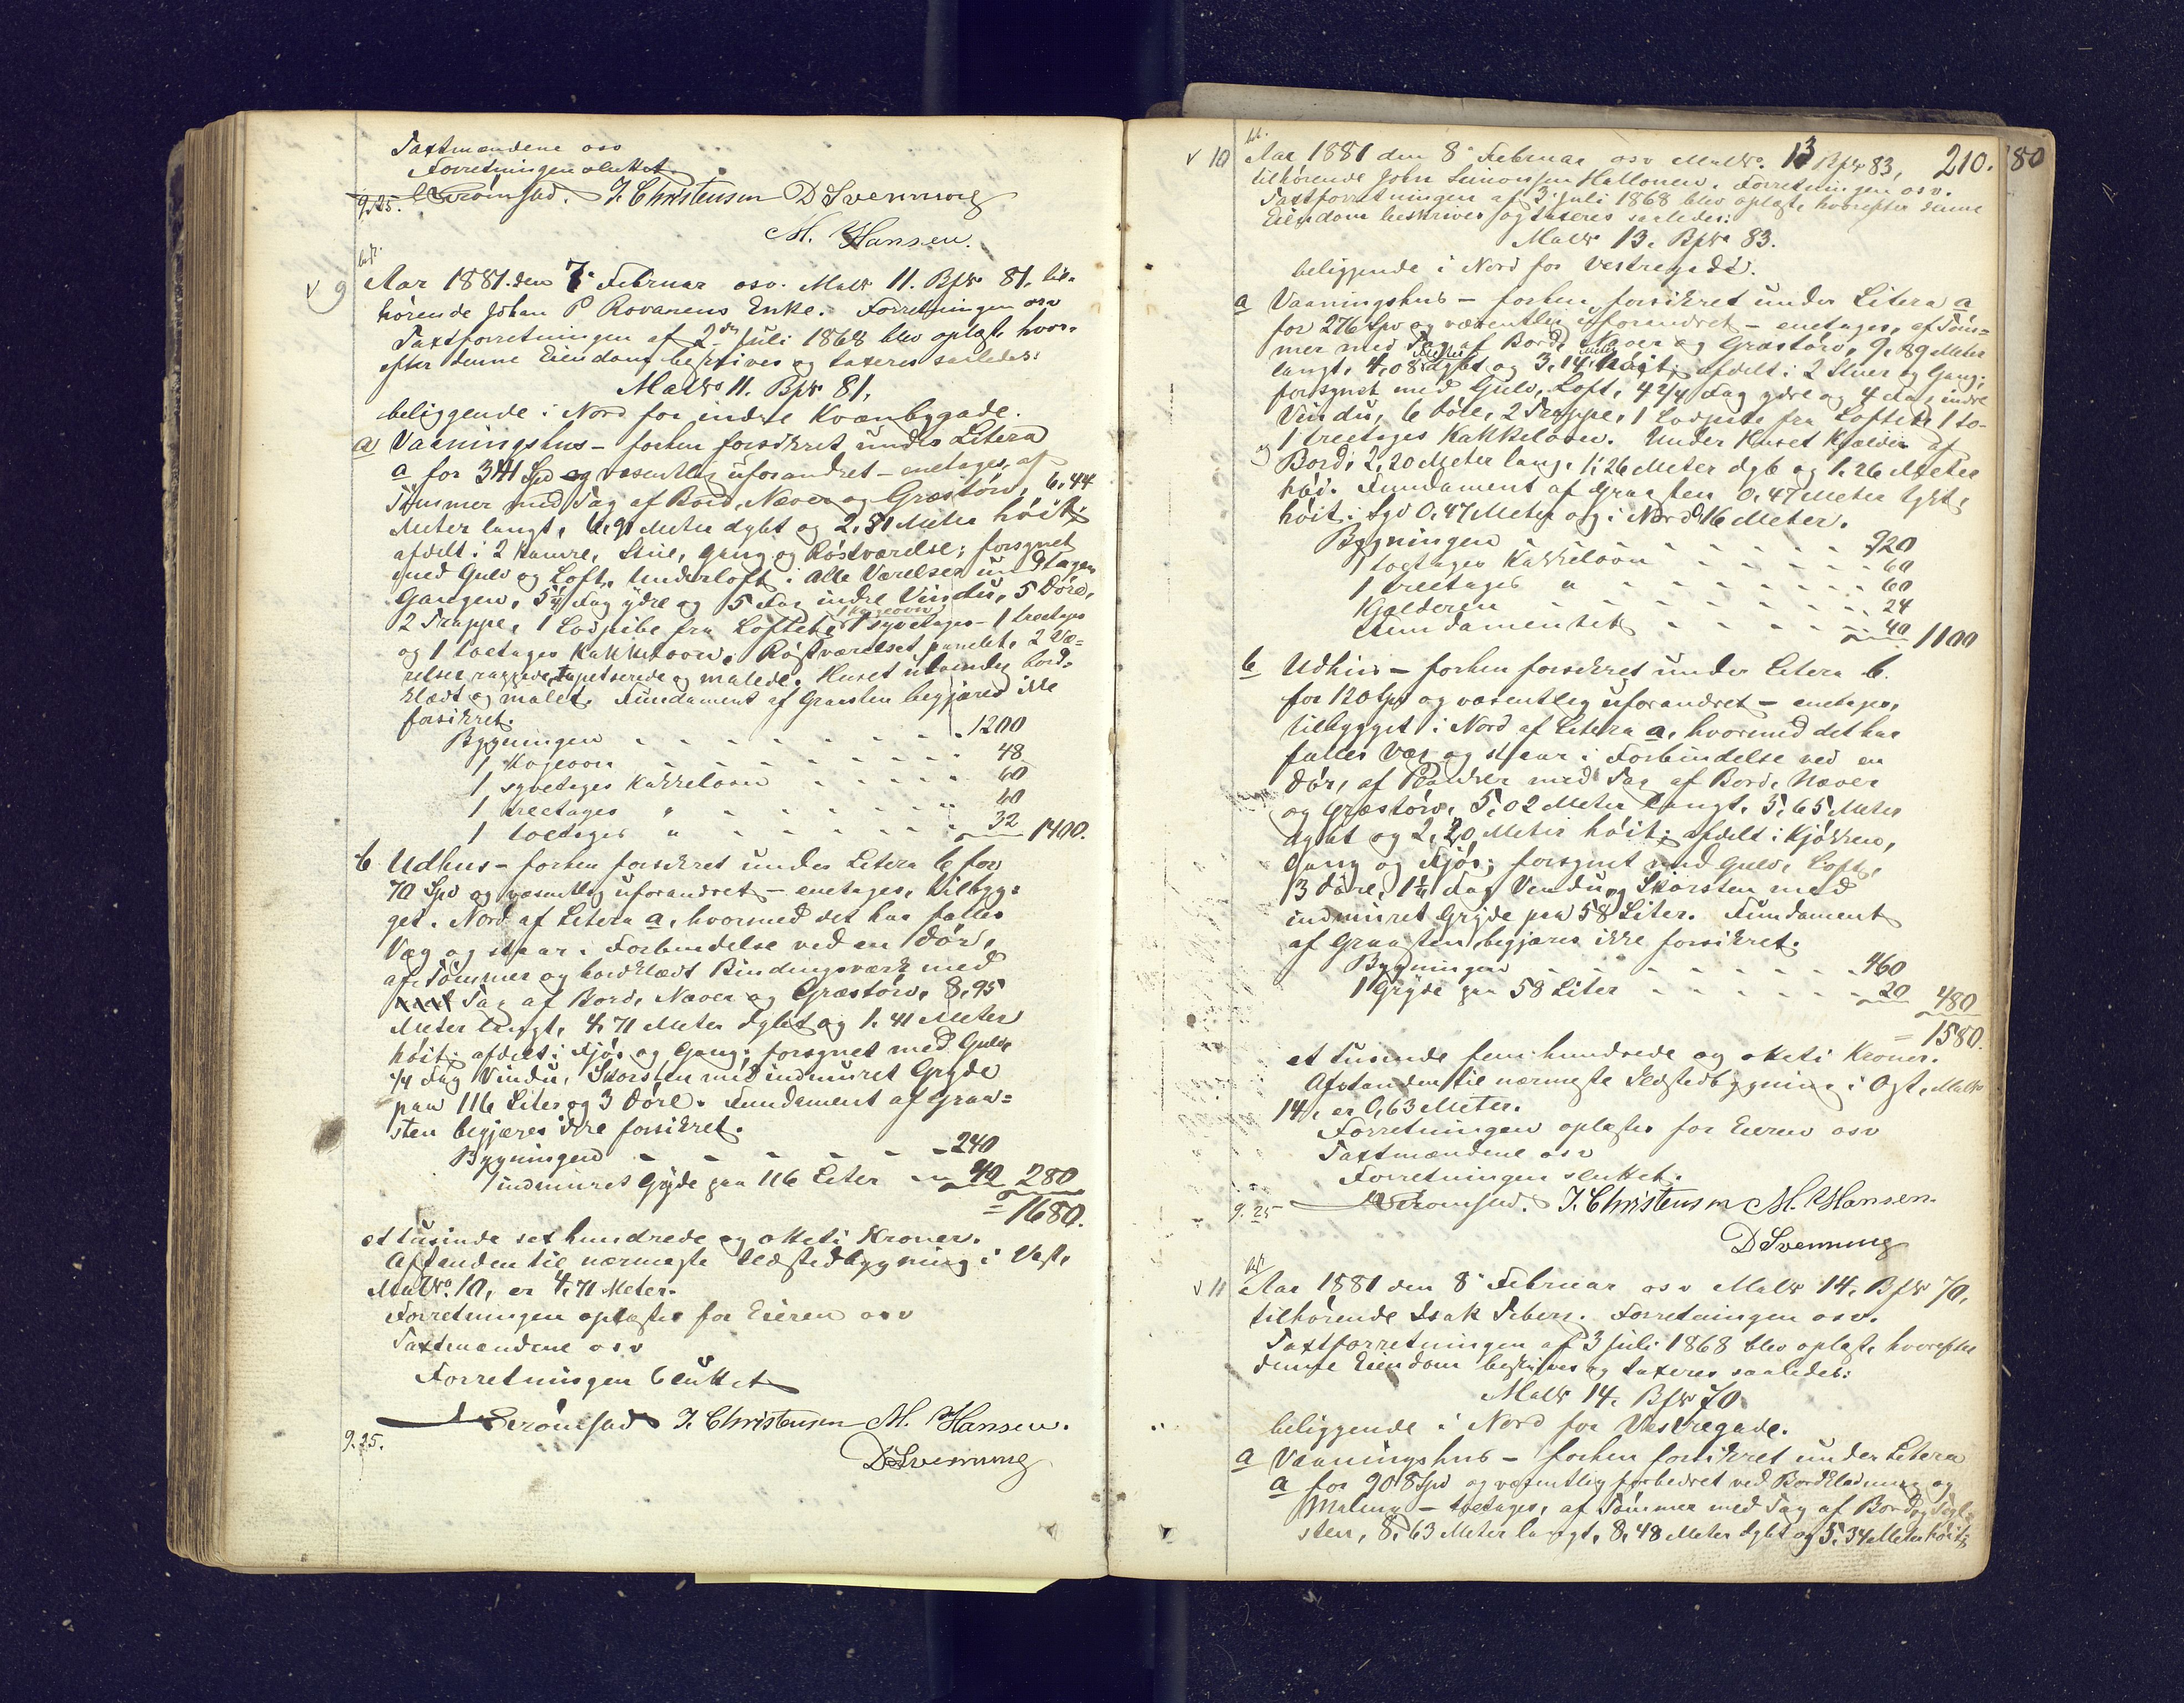 Taxtmændene osv
Forretningen sluttet
9.25. J. Christensen D Svenning
M. Hansen.
bet.
v 9 Aar 1881. den 7. Februar osv. Matr 11. Bfr 81, til-
hørende Johan P Rovanens Enke. Forretningen osv
Taxtforretningen af 2den Juli 1868 blev oplæst, hvor-
efter denne Eiendom beskrives og taxeres saaledes:
Matr 11. Bfr 81,
beliggende i Nord for indre Kvænbygade.
a Vaaningshus - forhen forsikret under Litera
a for 341 Spd og væsentlig uforandret - enetages, af
Tømmer med Tag af Bord, Næver og Græstørv, 6,44
Meter langt, 6,91 Meter dybt og 2,81 Meter høit;
afdelt i 2 Kamre, Stue, Gang og Røstværelse; forsynet
med Gulv og Loft, Underloft i alle Værelser undtagen
Gangen, 5 1/4 Fag ydre og 5 Fag indre Vindu, 5 Døre,
2 Trappe, 1 Lodpibe fra Loftet, 1 Kogeovn 1 syvetages - 1 treetages
og 1 toetages Kakkelovn. Røstværelset panelet, 2 Væ-
relser raggede, tapetserede og malede. Huset udvendig bord-
klædt og malet. Fundament af Graasten begjæres ikke
forsikret.
Bygningen - - - - - - - - 1200
1 Kogeovn - - - - - - - - 48
1 syvetages Kakkelovn - - - - - 60
1 treetages " - - - - - - - 60
1 toetages " - - - - - - - 32 1400.
b Udhus - forhen forsikret under Litera b for
70 Spd og væsentlig uforandret - enetages, tilbyg-
get i Nord af Litera a, hvormed det har fælles
Væg og staar i Forbindelse ved en Dør,
af Tømmer og bordklædt Bindingsværk med
Tag af Bord, Næver og Græstørv, 8,95
Meter langt, 4,71 Meter dybt og 1,41 Meter
høit; afdelt i Fjøs og Gang; forsynet med Gulv,
1/4 Fag Vindu, Skorsten med indmuret Gryde
paa 116 Liter og 3 Døre. Fundament af Graa-
sten begjæres ikke forsikret.
Bygningen - - - - - - 240
1 indmuret Gryde paa 116 Liter - - 40 280
= 1680.
et tusinde sex hundrede og otteti Kroner.
Afstanden til nærmeste Ildstedbygning i Vest,
Matr. 10, er 4,71 Meter.
Forretningen oplæstes for Eieren osv
Taxtmændene osv
Forretningen sluttet
J. Christensen M. Hansen.
9.25.
D Svenning
210. 80
bet.
v 10 Aar 1881 den 8. Februar osv Matr. 13 Bfr 83,
tilhørende John Simonsen Hallonen. Forretningen osv.
Taxtforretningen af 3 Juli 1868 blev oplæst, hvorefter denne
Eiendom beskrives og taxeres saaledes:
Matr 13. Bfr 83.
beliggende i Nord for Vestregade.
a Vaaningshus - forhen forsikret under Litera a
for 276 Spd og væsentlig uforandret - enetages, af Tøm-
mer med Tag af Bord, Næver og Græstørv, 9,89 Meter
langt, 4,08 Meter dybt og 3,14 Meter høit; afdelt i 2 Stuer og Gang;
forsynet med Gulv, Loft, 4 2/4 Fag ydre og 4 Fag indre
Vindu, 6 Døre, 2 Trappe, 1 Lodpibe fra Loftet, 1 to-
og 1 treetages Kakkelovn. Under Huset Kjælder af
Bord, 2,20 Meter lang, 1,26 Meter dyb og 1,26 Meter
høi. Fundament af Graasten 0,47 Meter tykt,
høit i Syd 0,47 Meter og i Nord 0,16 Meter.
Bygningen - - - - - - - 920
1 toetages Kakkelovn - - - - - - 60
1 treetages " - - - - - - - 60
Kjælderen - - - - - - - - 24
Fundamentet - - - - - - 40 1100
b Udhus - forhen forsikret under Litera b.
for 120 Spd og væsentlig uforandret - enetages,
tilbygget i Nord af Litera a, hvormed det har
fælles Væg og staar i Forbindelse ved en
Dør, af Planker med Tag af Bord, Næver
og Græstørv, 5,02 Meter langt, 5,65 Meter
dybt og 2,20 Meter høit; afdelt i Kjøkken,
Gang og Fjøs; forsynet med Gulv, Loft,
3 Døre, 1 1/4 Fag Vindu og Skorsten med
indmuret Gryde paa 58 Liter. Fundament
af Graasten begjæres ikke forsikret.
Bygningen - - - - - - - - 460
1 Gryde paa 58 Liter - - - - - - 20 480
= 1580.
et tusinde fem hundrede og otteti Kroner.
Afstanden til nærmeste Ildstedbygning i Øst, Matr
14, er 0,63 Meter.
Forretningen oplæstes for Eieren osv
Taxtmændene osv
Forretningen sluttet.
9.25 J. Christensen M. Hansen.
D Svenning
bet.
v 11 Aar 1881 den 8. Februar osv Matr 14. Bfr 70,
tilhørende Isak Febers. Forretningen osv.
Taxtforretningen af 3 Juli 1868 blev oplæst, hvorefter
denne Eiendom beskrives og taxeres saaledes:
Matr 14. Bfr 70
beliggende i Nord for Vestregade.
a Vaaningshus - forhen forsikret under Litera
a for 908 Spd og væsentlig forbedret ved Bordklædning og
Maling - toetages, af Tømmer med Tag af Bord og Tegl-
sten, 8,63 Meter langt, 8,48 Meter dybt og 5,34 Meter høit;